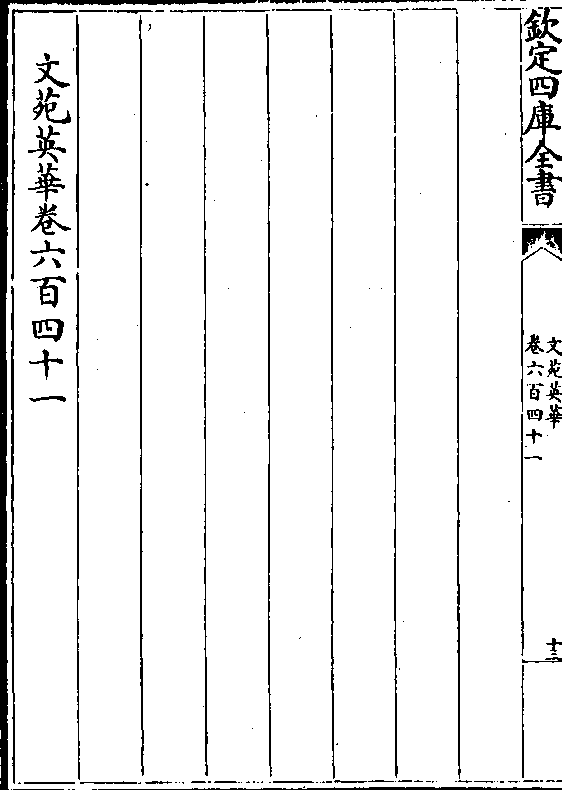 欽定四庫全書
文苑英華
卷六百四十一
十三
文苑英華卷六百四十一